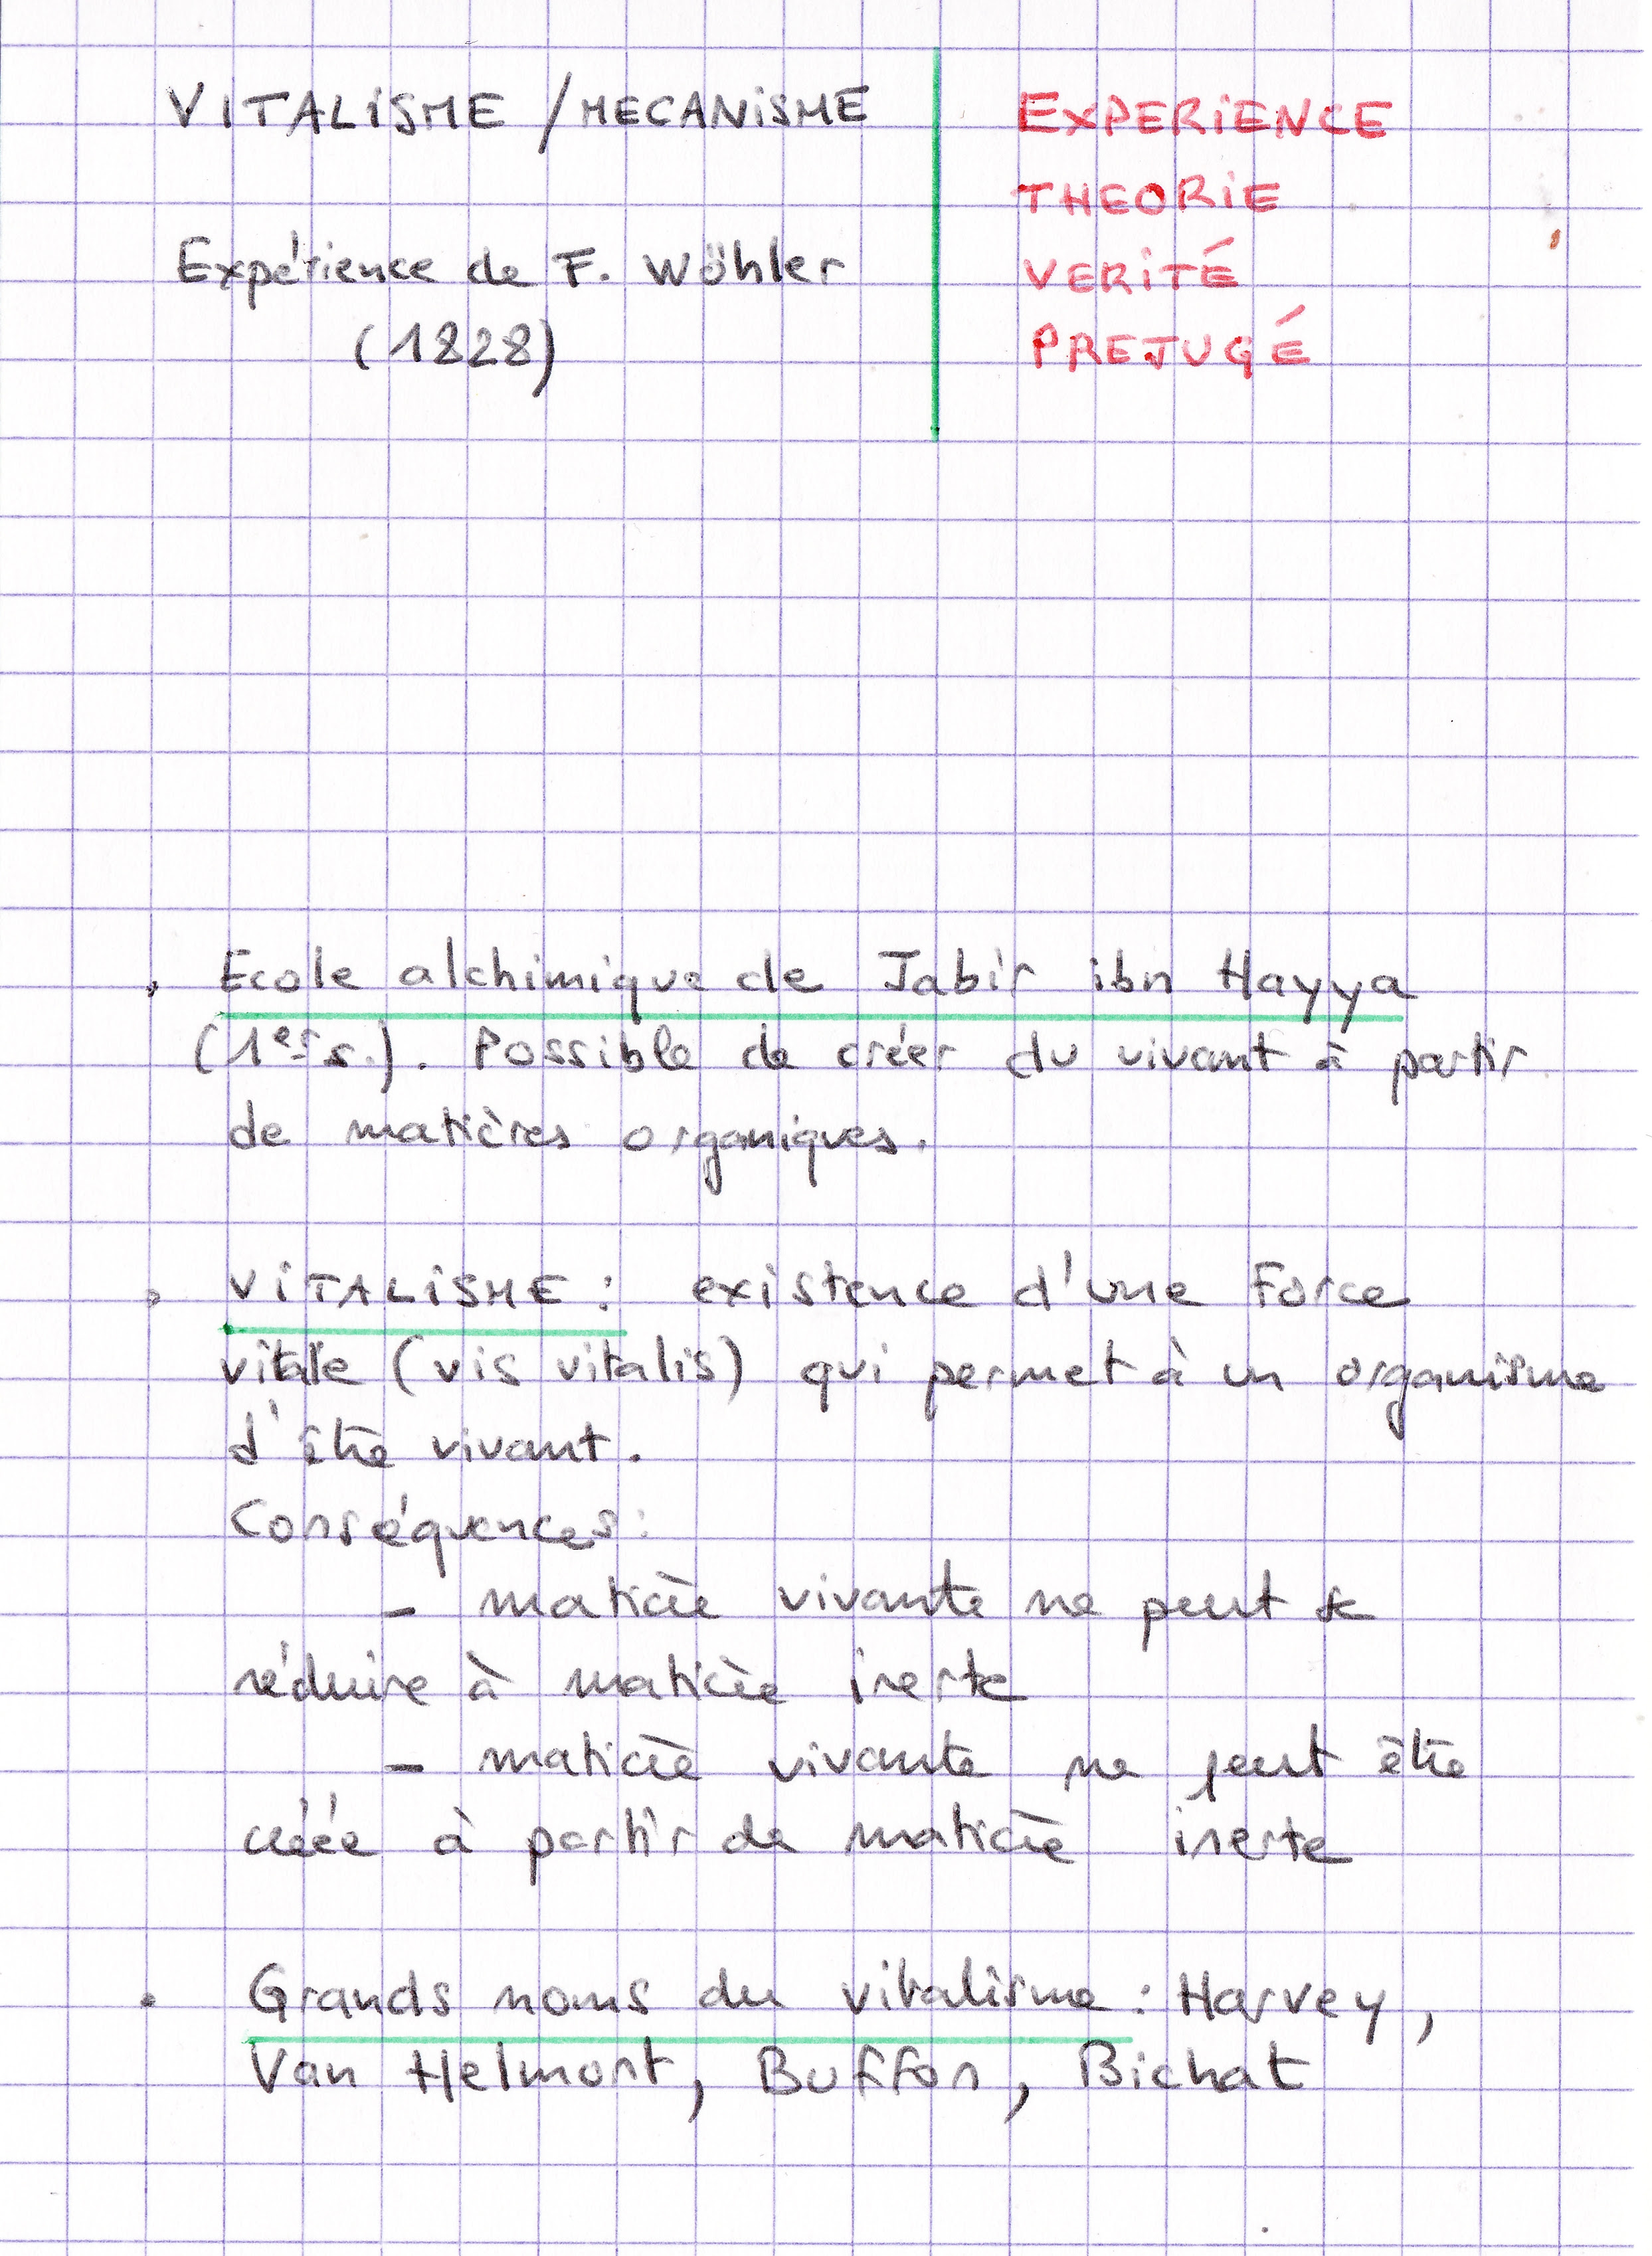 VITALISME / MECANISME
Expérience de F. Wöhler
(1828)
EXPERIENCE
THEORIE
VERITÉ
PREJUGÉ
. Ecole alchimique de Jabir ibn Hayya
(1er s.). Possible de créer du vivant à partir
de matières organiques.
. VITALISME : existence d'une Force
vitale (vis vitalis) qui permet à un organisme
d'être vivant.
Conséquences :
- matière vivante ne peut se
réduire à matière inerte
- matière vivante ne peut être
créée à partir de matière inerte
. Grands noms du vitalisme : Harvey,
Van Helmont, Buffon, Bichat